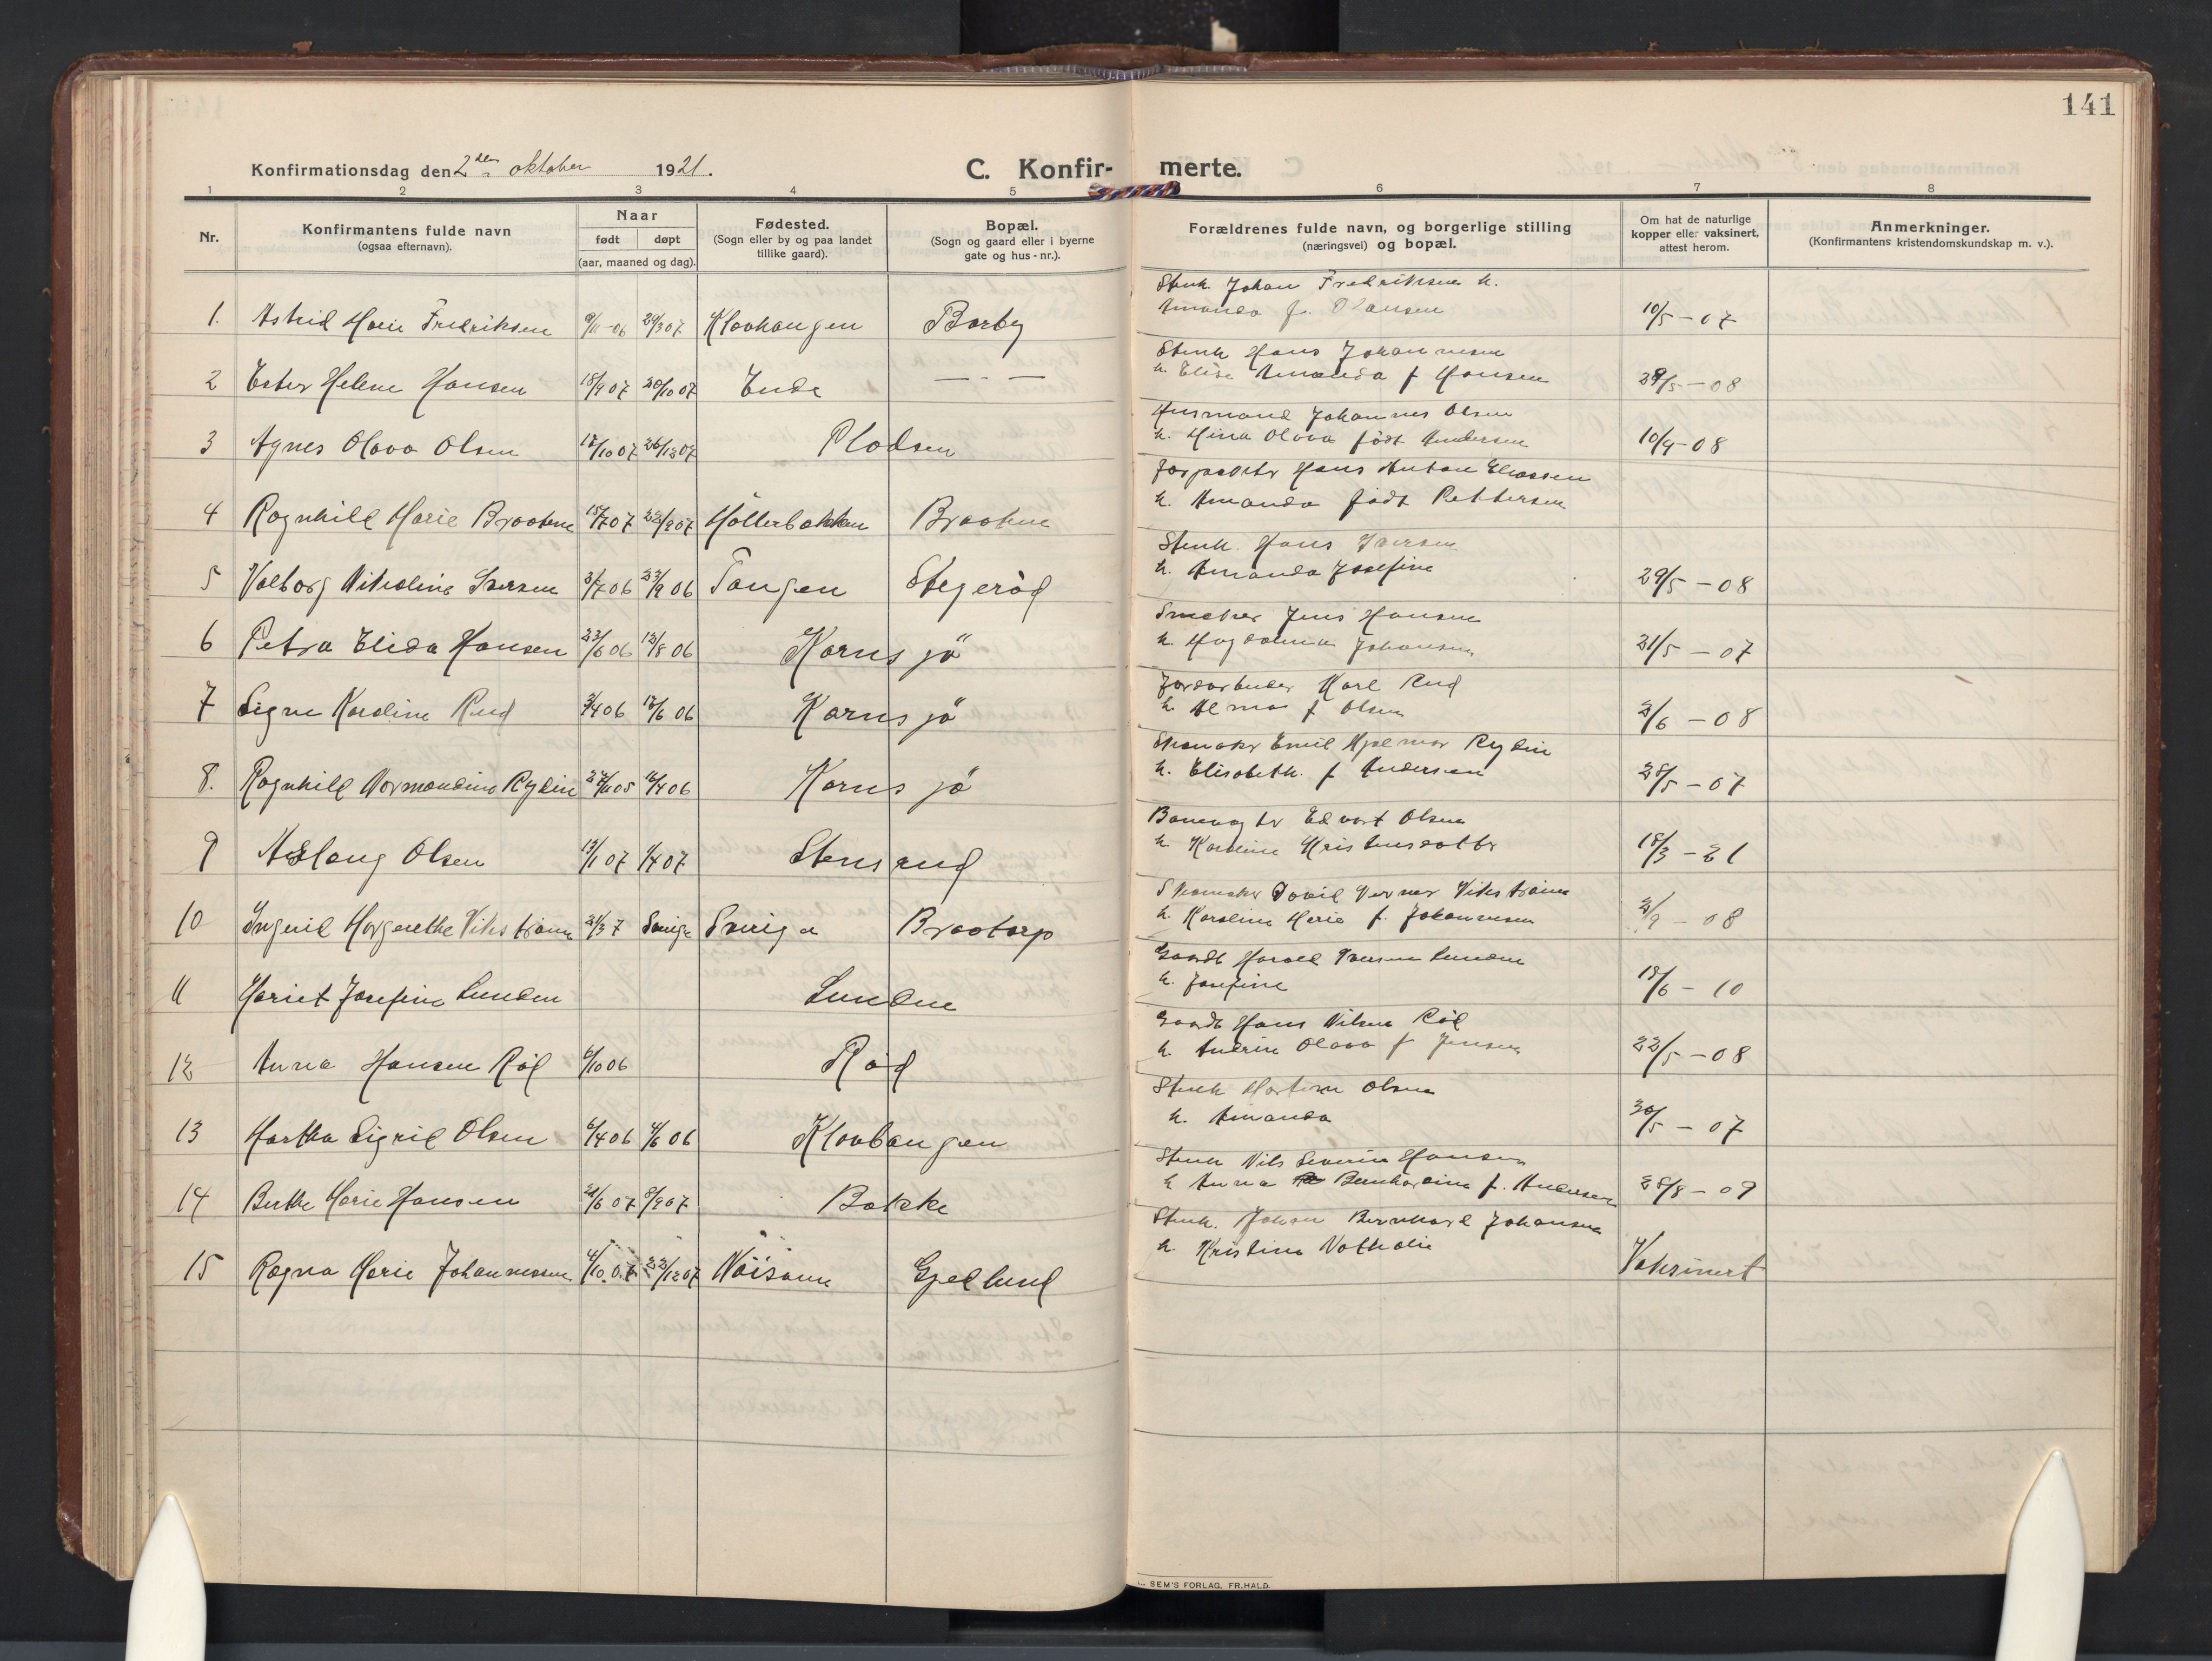 141
Konfirmationsdag den 2den oktober 1921.
C. Konfir- merte.
1 2 3 4 5 6 7 8
Nr.
Konfirmantens fulde navn
(ogsaa efternavn).
Naar
født døpt
(aar, maaned og dag).
Fødested.
(Sogn eller by og paa landet
tillike gaard).
Bopæl.
(Sogn og gaard eller i byerne
gate og hus-nr.).
Forældrenes fulde navn, og borgerlige stilling
(næringsvei) og bopæl.
Om hat de naturlige
kopper eller vaksinert,
attest herom.
Anmerkninger.
(Konfirmantens kristendomskundskap m. v.).
Stenh. Johan Fredriksen h.
Amanda f. Hansen
1. Astrid Marie Fredriksen 9/11-06 Klovhaugen Borby 10/5-07
Stenh Hans Johannesen
h. Elise Amanda f Hansen
2 Ester Helene Hansen 15/9 07 20/10 07 Ende — " — 29/5-08
Husmand Johannes Olsen
h. Mina Olava født Andersen
3 Agnes Olava Olsen 26/12 07 10/9-08
Forpakter Hans Anton Eliassen
h. Amanda født Pettersen
4 Ragnhild Marie Braatene 15/7 07 22/9 07 Møllerbakken Braatene
Stenh. Hans Iversen
h. Amanda Josefine
5 Valborg Nikoline Iversen 3/7 06 23/9 06 Tangen Stegerød 29/5-08
Jens Hansen
h. Magdalena Johansen
6 Petra Elida Hansen 23/6 06 12/8 06 Kornsjø 31/5-07
Jordarbeider Karl Rud
h. Alma f Olsen
7 Signe Karoline Rud 3/4 06 /6 06 Kornsjø 3/6-08
Skomaker Emil Hjalmar Rydin
h. Elisabeth. f Andersen
8. Ragnhild Normandine Rydin 27/11 05 16/4 06 Kornsjø 28/5-07
Banevogter Edvart Olsen
h. Karoline Kristensdatter
9 Aslaug Olsen 13/1 07 1/4 07 Stensrud 18/3-21
Skomaker Verner Vikstrøm
h. Karoline Marie f. Johannesen
10 Ingerid Margrethe Vikstrøm 31/3 7 Sverige Sverige Braatorp 3/9-08
Gaardb Harald Iversen Lunden
h. Josefine
11 Harriet Josefine Lunden Lunden 18/6-10
Gaardb Hans Nilsen Rød
h. Andrine Olava f Jensen
12 Anna Hansen Rød 6/10 06 Rød 22/5-08
Stenh Martin Olsen
h. Amanda
13 Martha Sigrid Olsen 6/4 06 4/6 06 Klovhaugen 30/5-07
Stenh Nils Severin Hansen
h Anna Bernhardine f. Andersen
14 Berthe Marie Hansen 21/6 07 8/9 07 Bakke 28/8-09
Stenh. Johan Bernhard Johansen
h. Kristine Nathalie
15 Ragna Marie Johannessen 4/10 07 22/12 07 Gjellund Vaksinert
SEM'S FORLAG, FR.HALD.